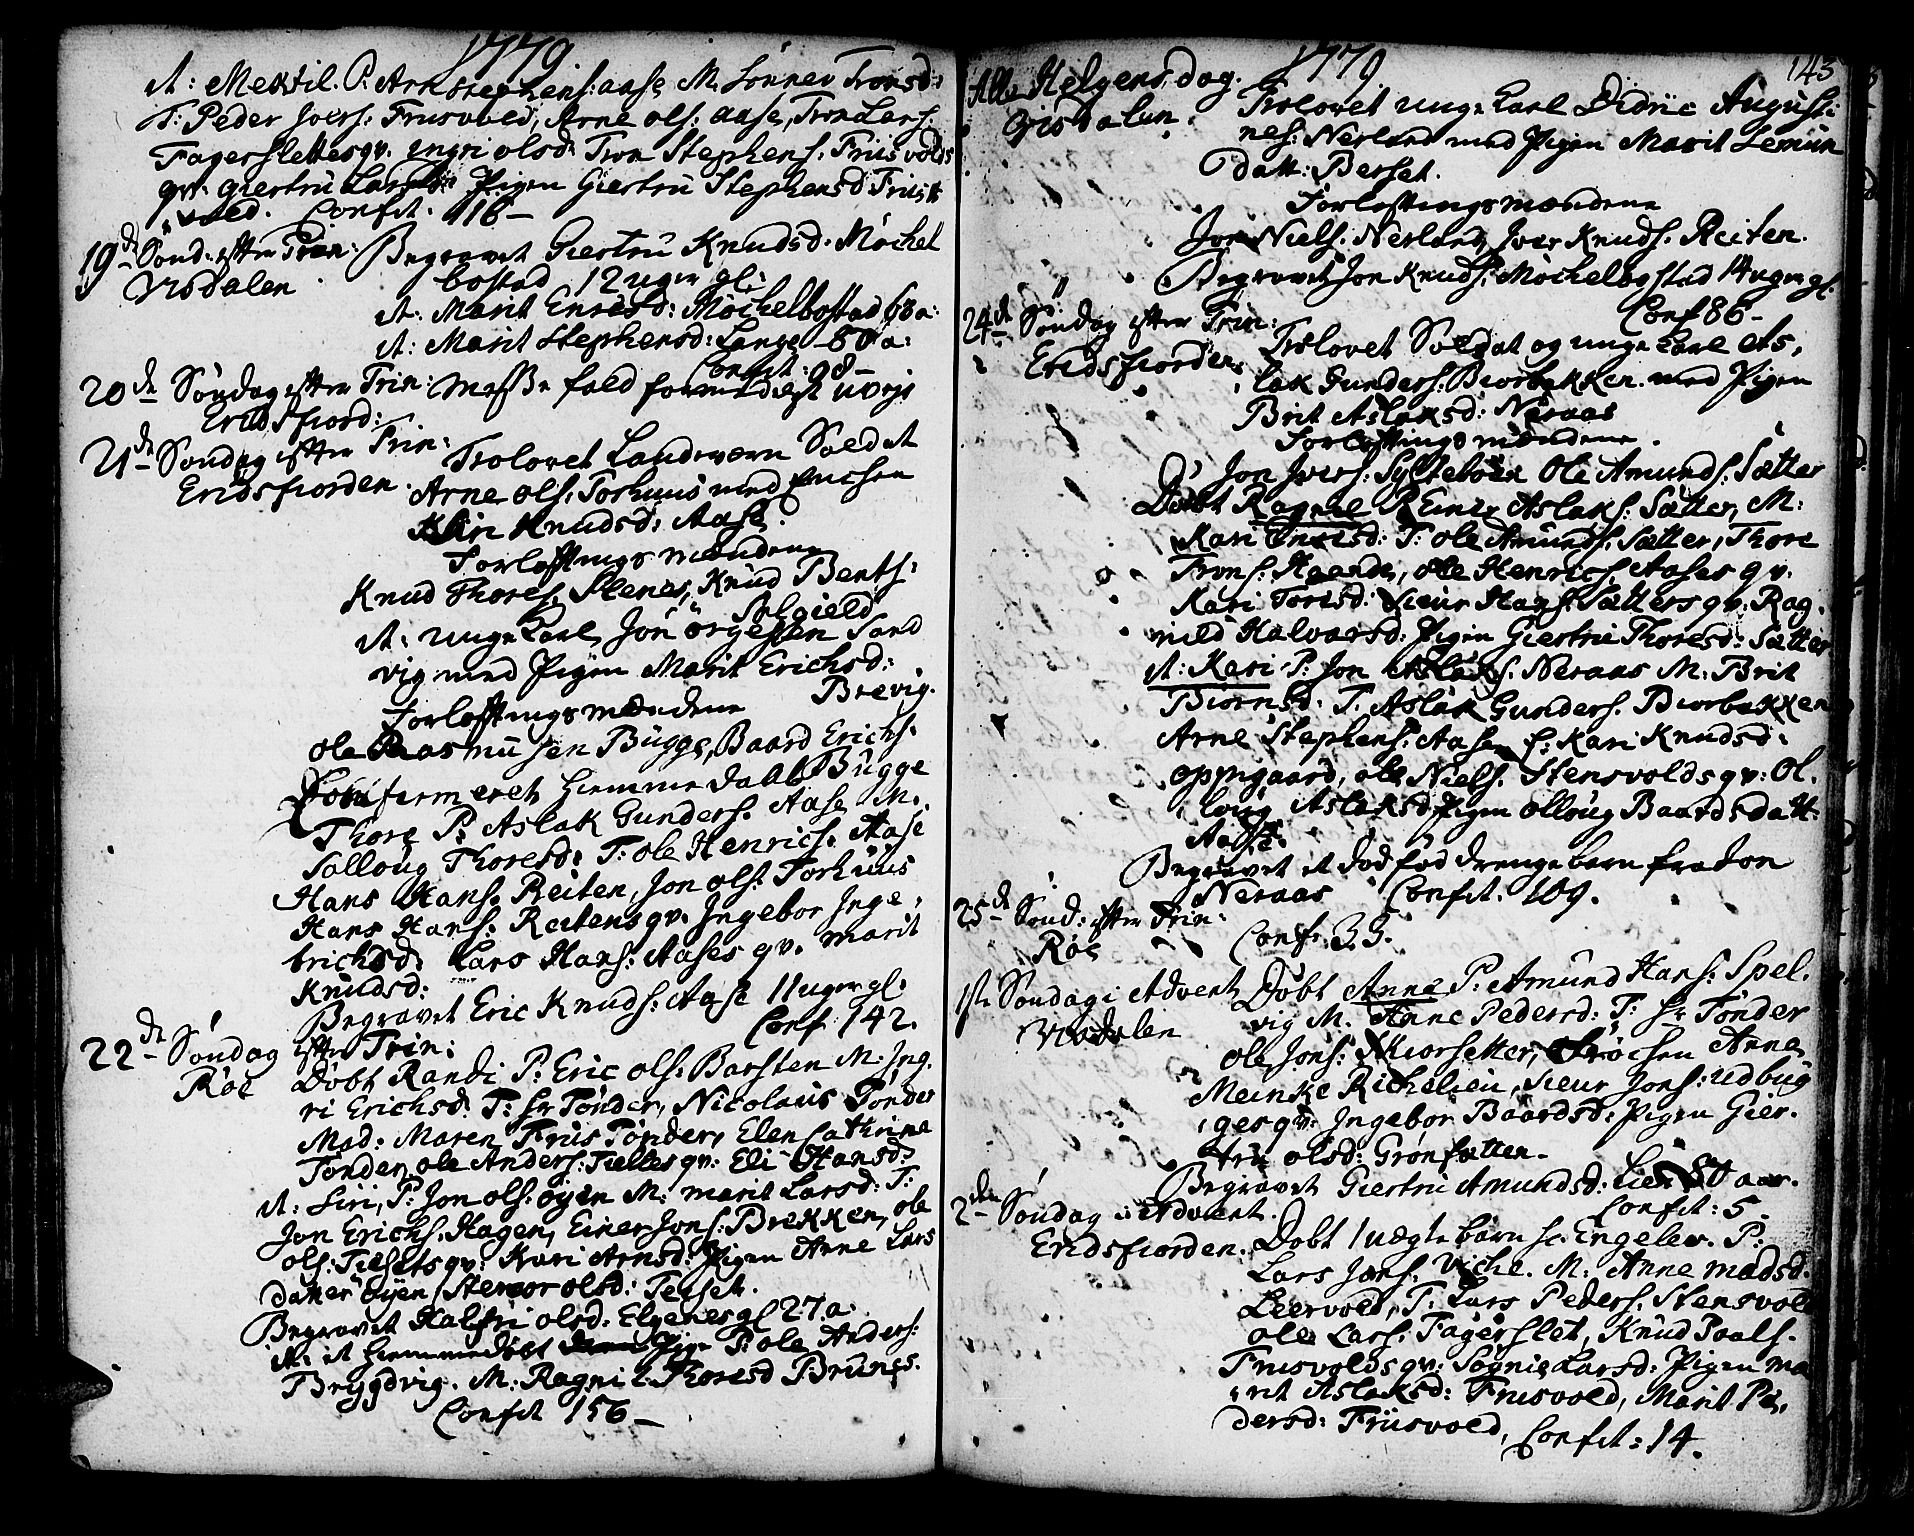 1779
it: Mektil. P: Arn Stephens: aase M. Sønnev Tronsd:
T: Peder Jvers: Friisvold, Arne ols: aase, Tron Lars:
Fagerslettes qv: ingri olsd: Tron Stephens: Friisvolds
qv: giertru Larsd: Pigen Giertru Stephensd Friis
vold. Confit. 116 –
19de Sønd: efter Trin: Begravet Giertru Knudsd: Møchel
Visdalen bostad 12 uger gl:
it: Marit Ensd: Møchelbostad 63 a:
it: Marit Stephensd: Lange 80 a:
Confit: 98 –
20de Søndag efter Trin: Messe fald formedelst uvejr
Eridsfiord:
21de Søndag efter Trin: Trolovet Landeværn Soldat
Eridsfiorden. Arne ols: Torhuus med Enchen
Kari Knudsd: Aase.
Forloftningsmændene
Knud Thores: Stenes, Knud Bents:
Solgield
it: unge Karl Jon örgessen Sand
vig med Pigen Marit Erichsd:
Brevig.
Forloftningsmændene
ole Rasmusen Bugge, Baard Erichs:
Bugge
Confirmeret hiemmedøbt
Thore P: Aslak Gunders: Aase M.
Solloug Thoresd: T: ole Henrichs: Aase
Hans Hans: Reiten, Jon ols: Torhuus
Hans Hans: Reitens qv. Ingebor Inge,
brichsd: Lars Hans: Aases qv. Marit
Knudsd:
Begravet Eric Knuds: Aase 11 uger gl.
Conf 142.
22de Søndag efter Trin:
Røe Døbt Randi P: Eric ols: Barsten M: Ing.
ri Erichsd: T: Hr Tønder, Nicolaus Tønder
Mad: Maren Friis Tønder, Elen Cathrine
Tønder, ole Anders: Tielles qv: Eli Hansd:
it: Siri, P: Jon ols: øyen M: Marit Larsd: T:
Jon Erichs: Hagen, Einer Jons: Brekken, ole
ols: Tiesets qv: Kari Arnsd: Pigen Anne Lars
datter øyen, Stenor olsd: Teiset.
Begravet Halfri olsd: Elgenes gl 27 a:
it: et hiemmedøbt Pige P: ole Anders:
Brygdvig. M: Ragnil Thoresd Brunes.
Confit 156 –
1779
143
Alle Helgens dag.
Visdalen. Trolovet unge Karl Didric August:
nes: Nerland med Pigen Marit Semun
datt: Berset.
Forloftningsmændene
Jon Niels: Nerland, Jver Knuds: Reiten.
Begravet Jon Knuds: Møchelbostad 14 uger gl:
Conf 86 –
24de Søndag efter Trin:
Eridsfiorden: Trolovet Soldat og unge Karl As,
lak Gunders: Biorbekken med Pigen
Brit Aslaksd: Neraas
Forloftningsmændene.
Jon Jvers: Syltebøen Ole Amunds: Sætter
Døbt Ragnel P. Einer Aslaks: Sætter, M:
Kari Ensd: T: ole Amunds: Sætter, Thore
Trons: Haande, ole Henrichs: Aases qv.
Kari Toresd: Sieur Hans: Sætters qv: Rag.
nild Halvorsd: Pigen Giertru Thoresd: Sætter
it: Kari P: Jon Aslaks: Neraas M: Brit
Biørnsd: T: Aslak Gunders: Biorbekken
Arne Stephens: Aase, E: Kari Knudsd:
opingaard, ole Niels: Stensvolds qv: Ol.
loug Aslaksd Pigen olloug Baardsdatt:
Aase.
Begravet et dødfød drengebarn fra Jon
Neraas Confit. 109.
25de Sønd: efter Trin:
Røe Conf. 33.
1ste Søndag i Advent Døbt Anne P: Amund Hans: Spel.
Visdalen vig M. Anne Pedersd: T: Hr Tønder
ole Jons: Miorsetter, Frøchen Anne
Meinke Richelieu, Sieur Jons: Udbug
ges qv: Ingebor Baardsd: Pigen Gier.
tru olsd: Grønfætten.
Begravet Giertru Amundsd: Lien 80 aar.
Confit: 5.
2den Søndag i Advent.
Eridsfiorden. Døbt 1 uægte barn sc. Engelev. P:
Lars Jons: Viche. M: Anne Madsd:
Leervold, T: Lars Peders: Stensvold
ole Lars: Fagerslet, Knud Poels.
Friisvolds qv: Sognie Larsd: Pigen Ma
rit Aslaksd: Friisvold, Marit Pe,
dersd: Friisvold, Confit: 14.